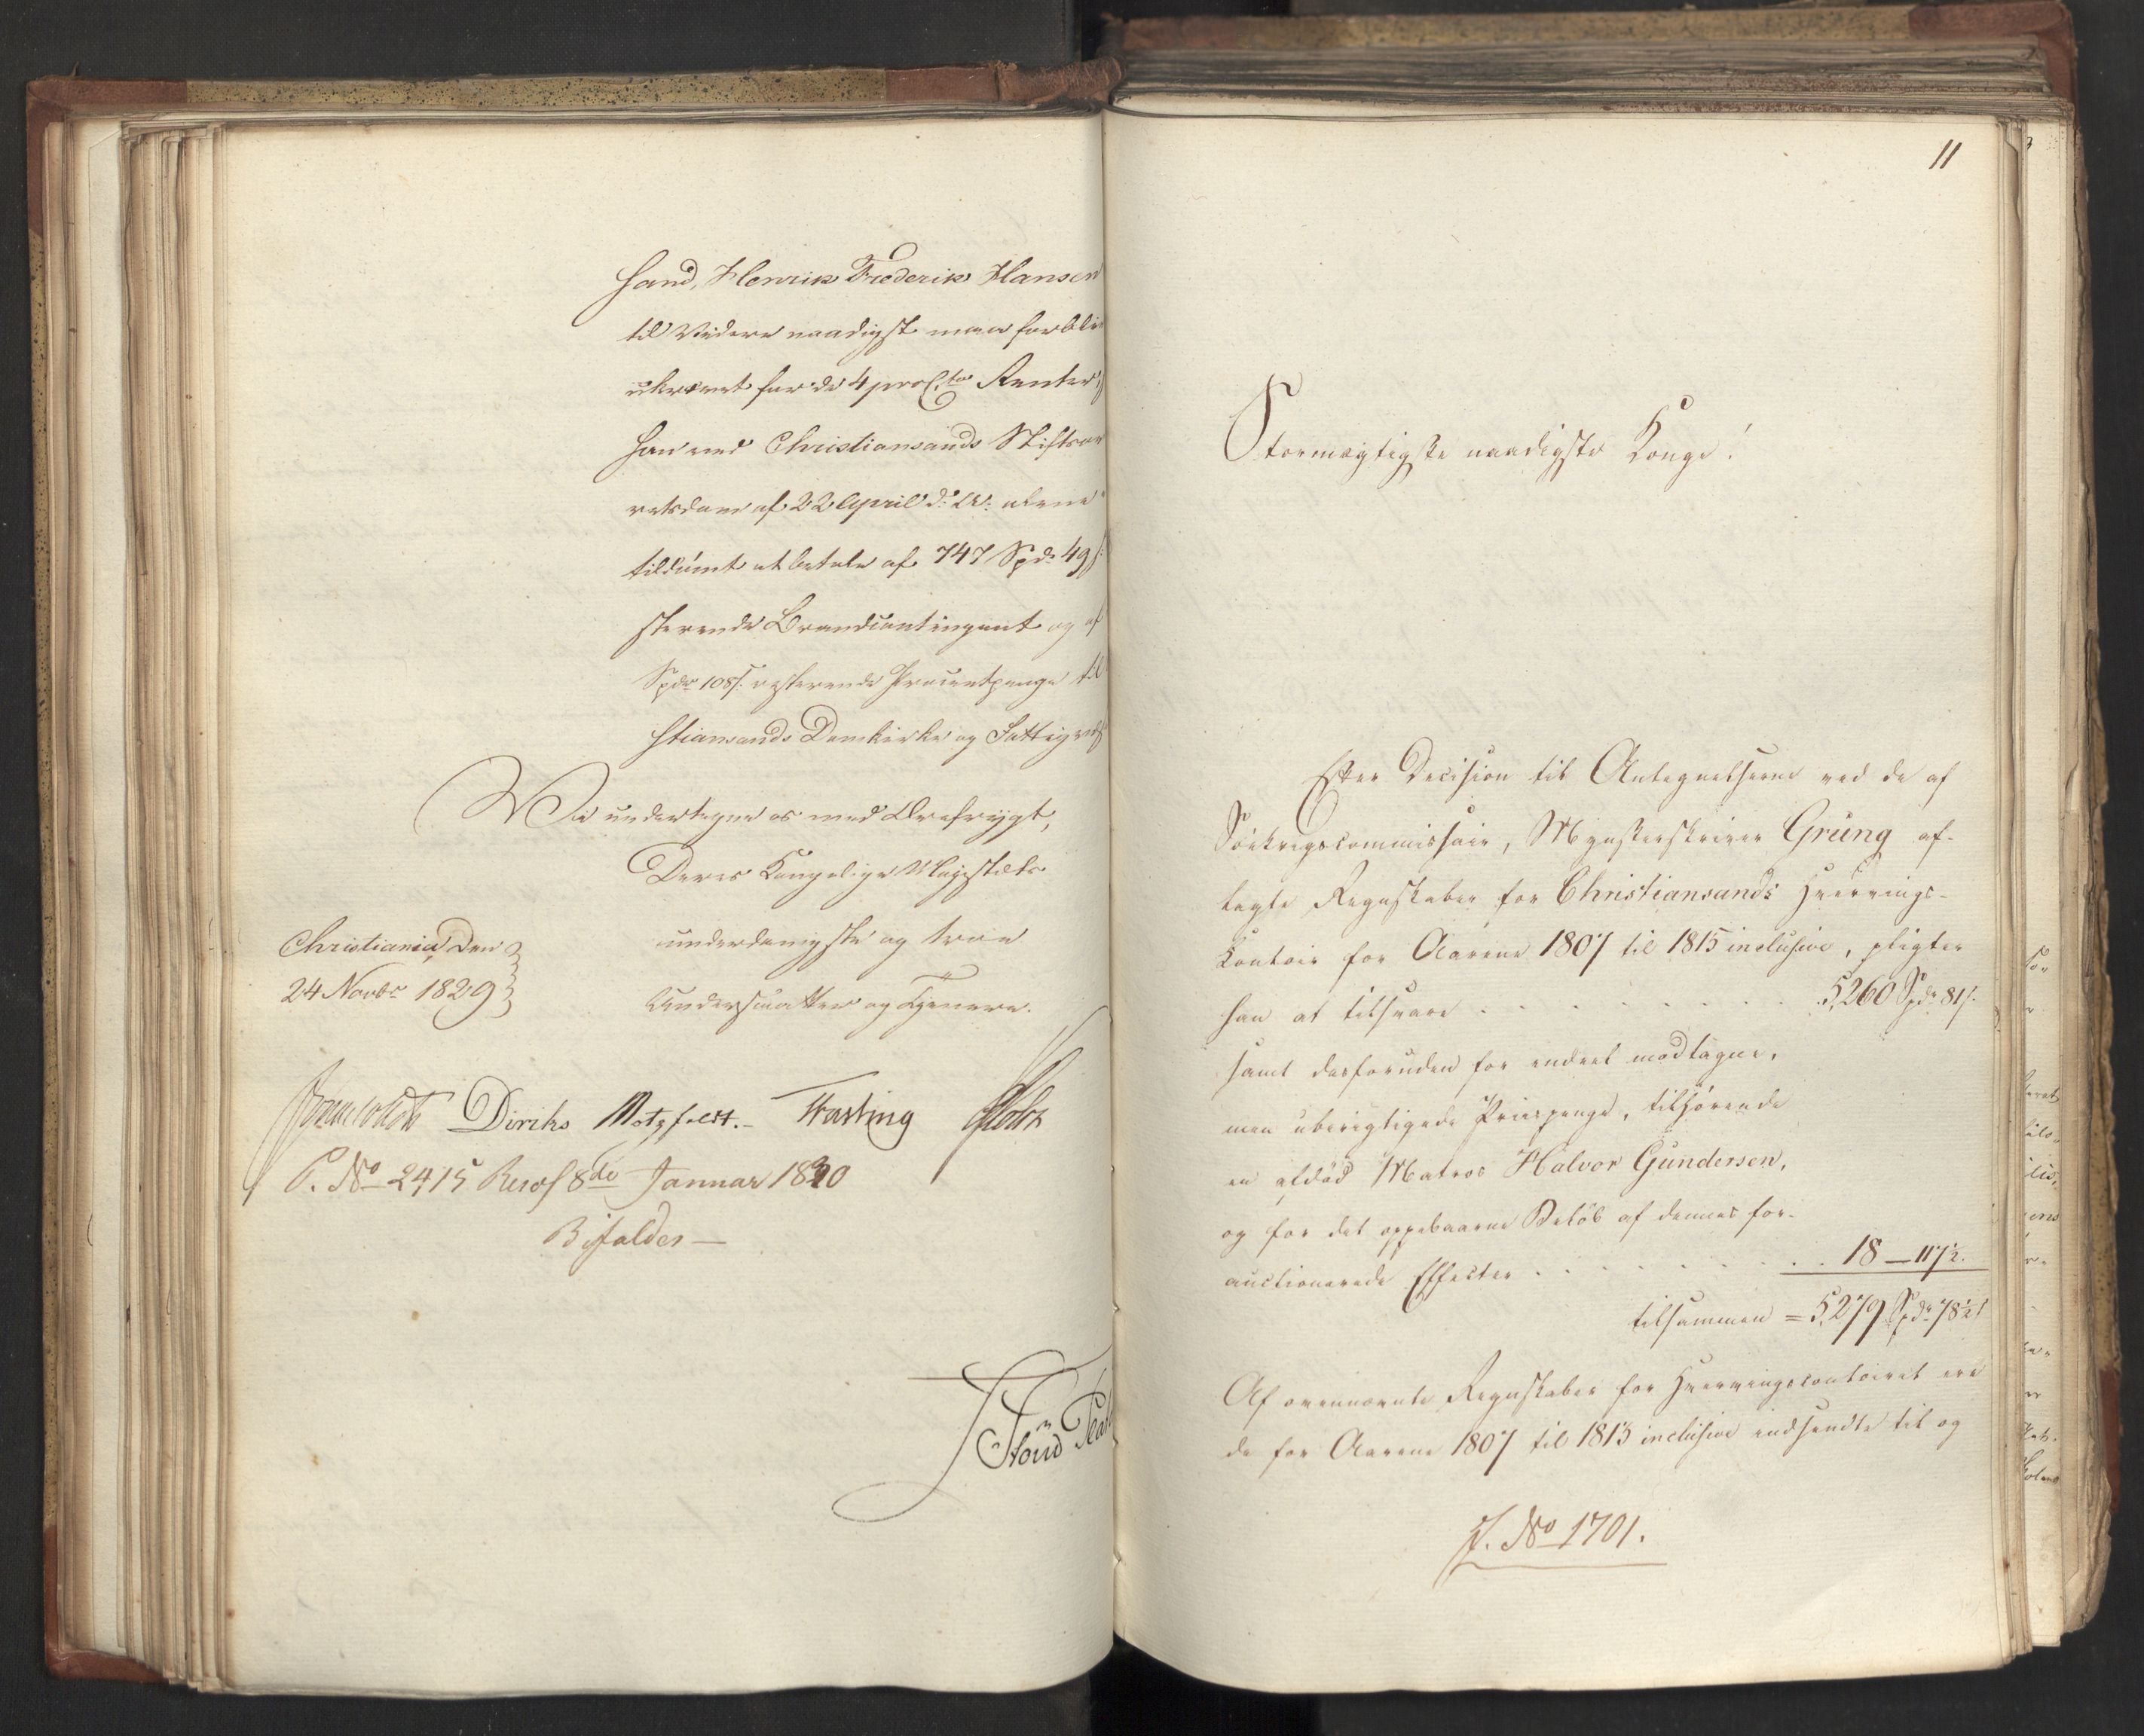 sand, Henrik Frederik Hansen
til Videre naadigst maa forbliv
ukrævet for de 4 proC:to Renter,
han ved Christiansands Stiftsov
retsdom af 22 April d: A: alene
tildømt at betale af 747 Spd: 49 s:
sterende Brandcontingent og af
Spdr 108 s: resterende Procentpenge til
stiansands Domkirke og Fattigvæs
Vi undertegne os med Ærefrygt,
Deres Kongelige Majestæts
underdanigste og troe
Undersaatter og Tjenere.
Christiania, den
24 Novbr 1829
Diriks Motzfeldt. Fasting
P. No 2415 Resol 8de Januar 1830
Bifaldes
Stoud
11
Stormægtigste naadigste Konge!
Efter Decision til Antegnelserne ved de af
Søekrigscommissair, Mynsterskriver Grüng af-
lagte Regnskaber for Christiansands Hververings-
kontoir for Aarene 1807 til 1815 inclusive, pligter
han at tilsvare . . . . . . . 5,260 Spdr 81 s.
samt desforuden for endeel modtagne,
men uberigtigede Priispenge, tilhørende
en afdød Matros Halvor Gundersen,
og for det oppebaarne Beløb af dennes for-
auctionerede Effecter . . . . . . . 18 — 117½.
tilsammen = 5,279 Spdr 78½ s
Af ovennævnte Regnskaber for Hververingscontoiret ere
de for Aarene 1807 til 1813 inclusive indsendte til og
J. No 1701.